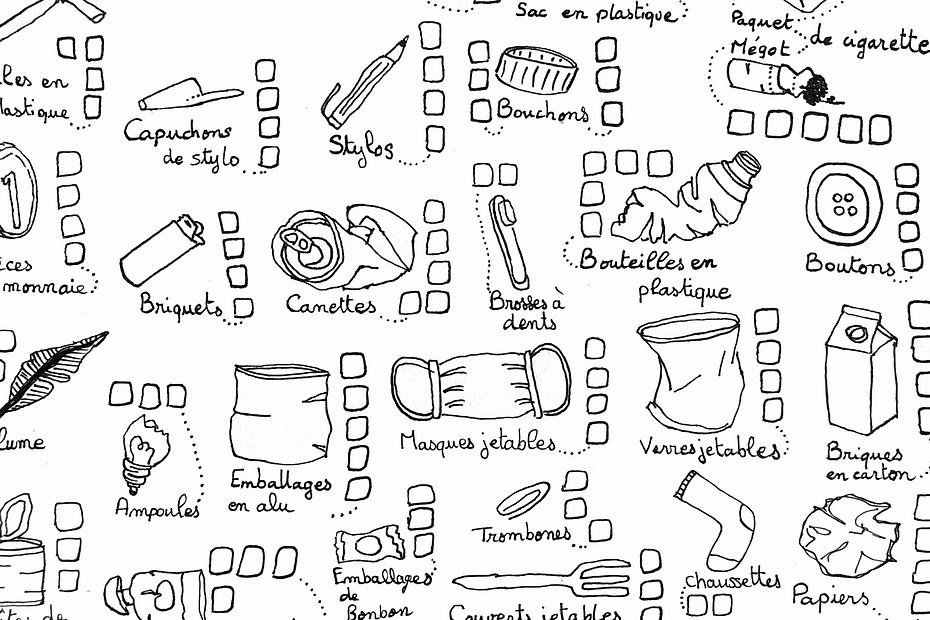 Sac en plastique
Paquet
Mégot de cigarette
Capuchons
de stylo
Stylos
Bouchons
monnaie
Briquets
Canettes
Brosses à
dents
Bouteilles en
plastique
Boutons
Ampoules
Emballages
en alu
Masques jetables
Verres jetables
Briques
en carton
Trombones
Emballages
de
Bonbon
Couverts jetables
chaussettes
Papiers